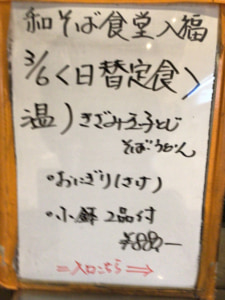 和そば食堂 入福
3/6〈日替定食〉
温)きざみ玉子とじ
そばorうどん
◦おにぎり(さけ)
◦小鉢 2品付
¥880,—
=入口こちら⇒